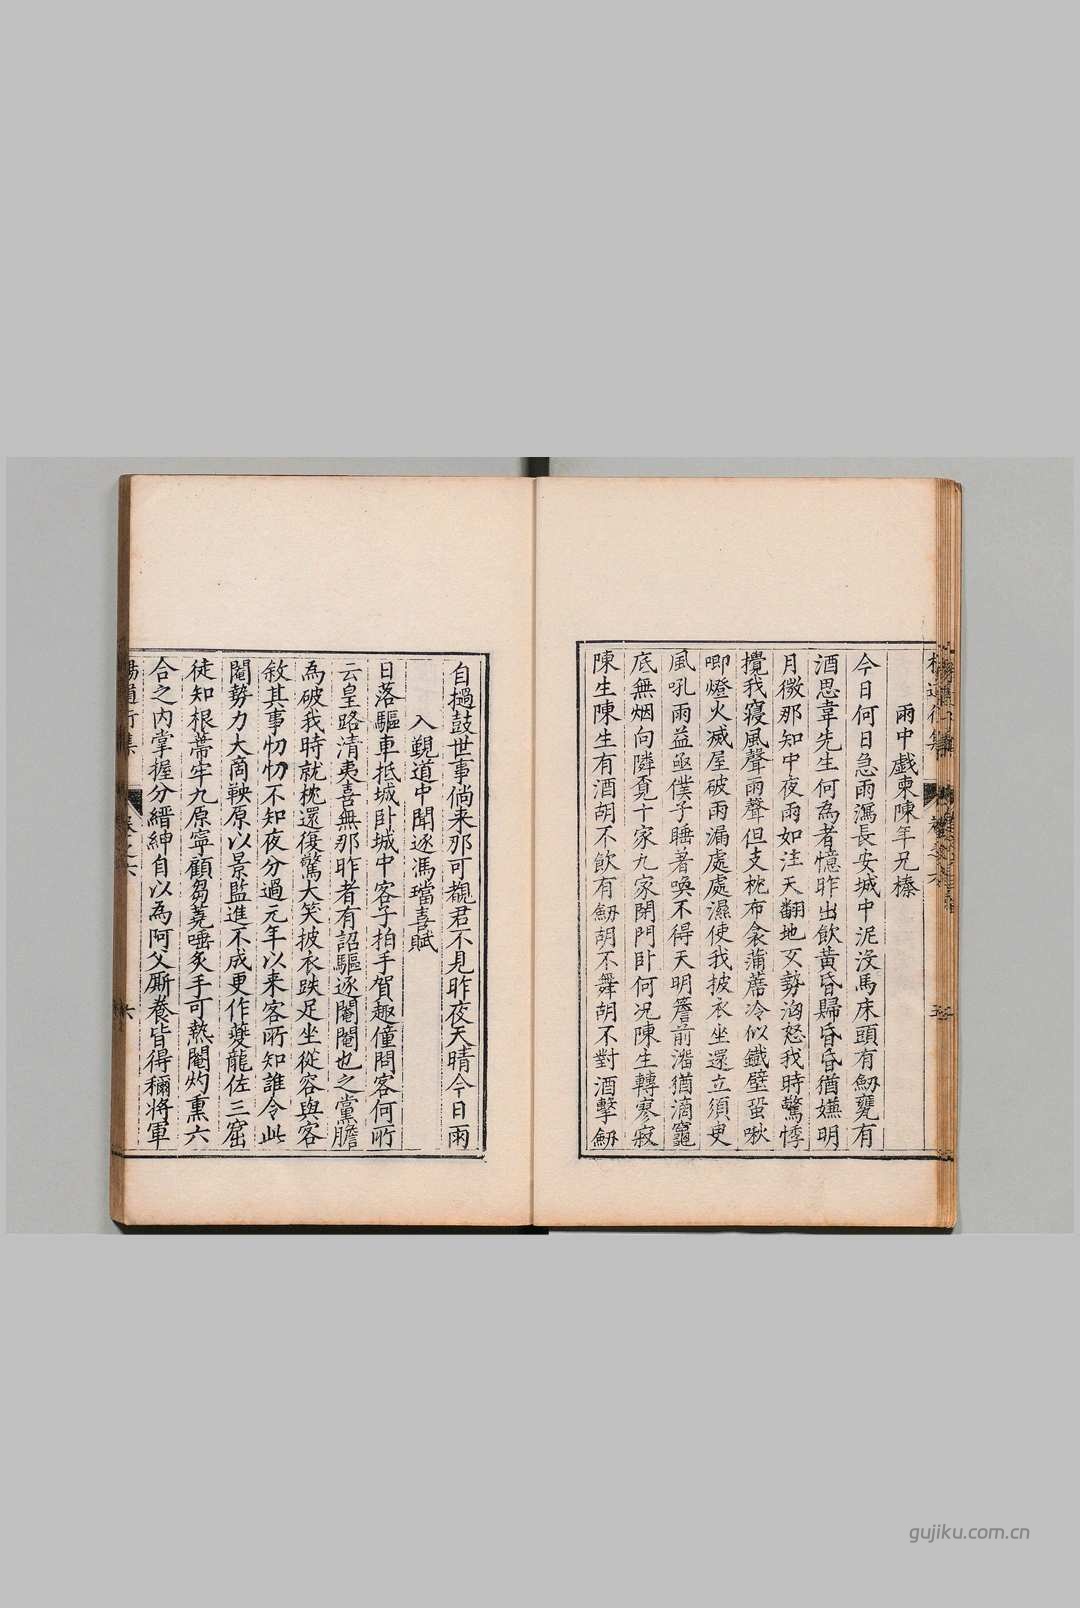 雨中戲柬陳年兄榛
今日何日急雨瀉長安城中泥没馬床頭有劒甕有
酒思韋先生何為者憶昨出飲黄昏歸昏昏猶嫌明
月微那知中夜雨如注天翻地
怒我時驚悸
攪我寢風聲雨聲但支枕布衾蒲蓆冷似鐵壁蛩啾
唧燈火滅屋破雨漏處處濕使我披衣坐還立須臾
風吼雨益亟僕子睡著喚不得天明簷前溜猶滴竈
底無烟向隣覓十家九家閉門卧何况陳生轉寥寂
陳生陳生有酒胡不飲有劒胡不舞胡不對酒擊劒
自撾鼓世事倘来那可覯君不見昨夜天晴今日雨
入覲道中聞逐馮璫喜賦
日落驅車抵城卧城中客子拍手賀趣僮問客何所
云皇路清夷喜無那昨者有詔驅逐閹閹也之黨膽
為破我時就枕還復驚大笑披衣趺足坐從容與客
敘其事忉忉不知夜分過元年以来客所知誰令此
閹勢力大商鞅原以景監進不成更作夔龍佐三窟
徒知根蒂牢九原寧顧芻蕘唾炙手可熱閹灼熏六
合之内掌握分縉紳自以為阿父厮養皆得稱將軍